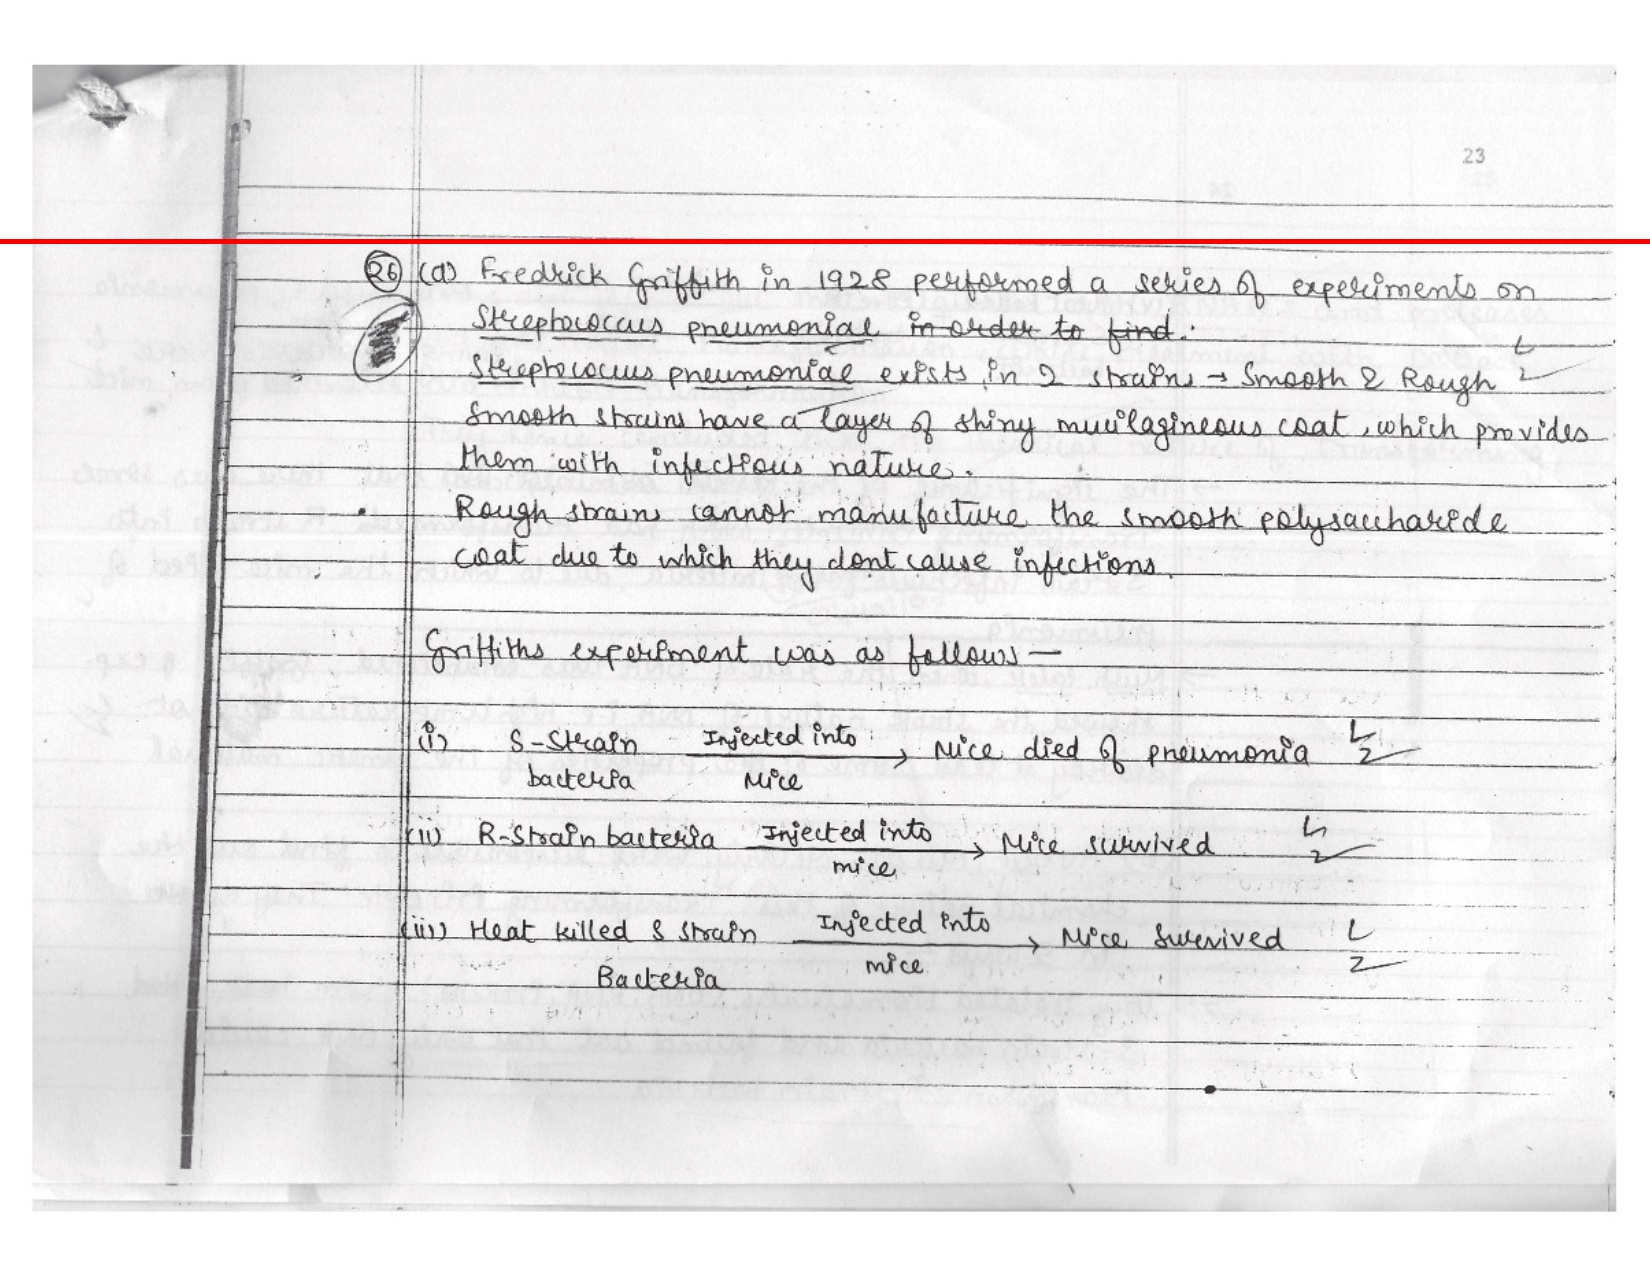 23
26 (a) Fredrick Griffith in 1928 performed a series of experiments on
Streptococcus pneumoniae in order to find.
Streptococcus pneumoniae exists in 2 strains → Smooth & Rough
Smooth strains have a layer of shiny mucilagineous coat, which provides
them with infectious nature.
Rough strains cannot manufacture the smooth polysaccharide
coat due to which they dont cause infections.
Griffiths experiment was as follows —
(i) S-Strain bacteria Injected into Mice → Mice died of pneumonia 1/2
(ii) R-Strain bacteria Injected into mice → Mice survived 1/2
(iii) Heat killed S strain Bacteria Injected into mice → Mice Survived 1/2